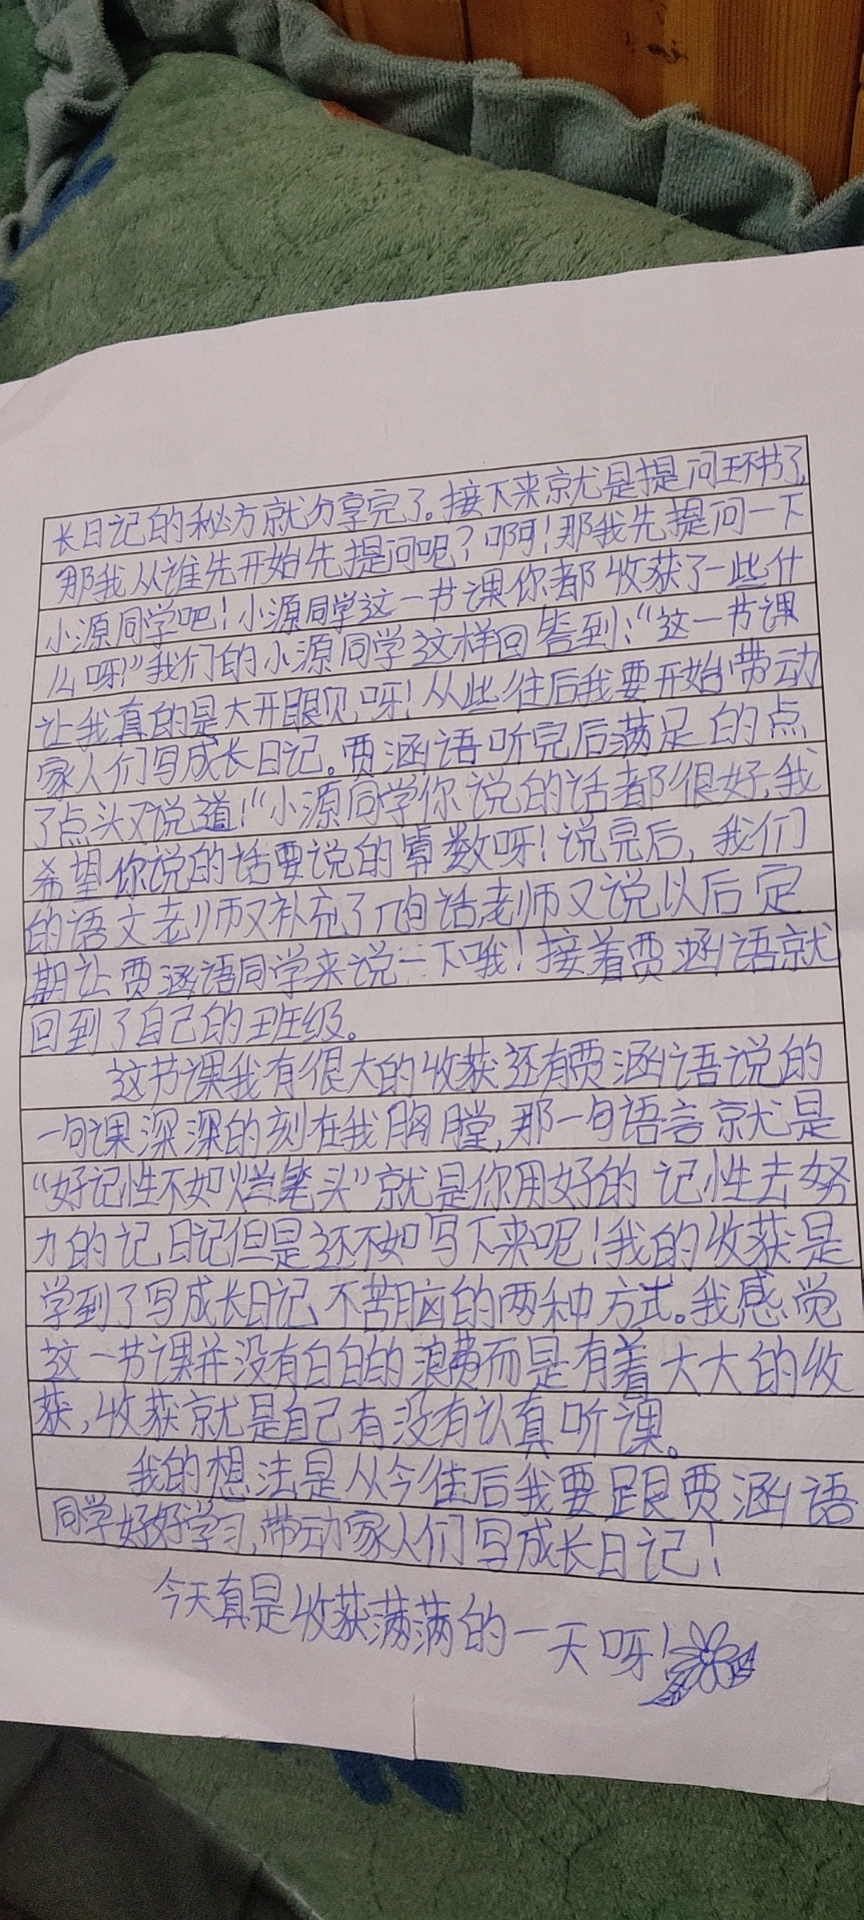 长日记的秘方就分享完了。接下来就是提问环节了,
那我从谁先开始先提问呢?啊!那我先提问一下
小源同学吧!小源同学这一节课你都收获了一些什
么呀?”我们的小源同学这样回答到:“这一节课
让我真的是大开眼见呀!从此往后我要开始带动
家人们写成长日记。贾涵语听完后满足的点
了点头又说道!“小源同学你说的话都很好,我
希望你说的话要说的算数呀!说完后,我们
的语文老师又补充了几句话老师又说以后定
期让贾涵语同学来说一下哦!接着贾涵语就
回到了自己的班级。
这节课我有很大的收获还有贾涵语说的
一句课深深的刻在我胸膛,那一句语言就是
“好记性不如烂笔头”就是你用好的记性去努
力的记日记但是还不如写下来呢!我的收获是
学到了写成长日记不苦脑的两种方式。我感觉
这一节课并没有白白的浪费而是有着大大的收
获,收获就是自己有没有认真听课。
我的想法是从今往后我要跟贾涵语
同学好好学习,带动家人们写成长日记!
今天真是收获满满的一天呀!